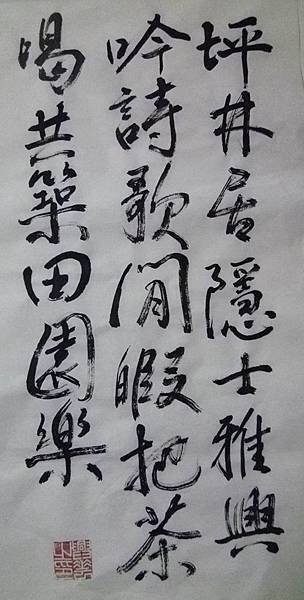 坪林居隱士雅興
吟詩歌閒暇把茶
喝共築田園樂